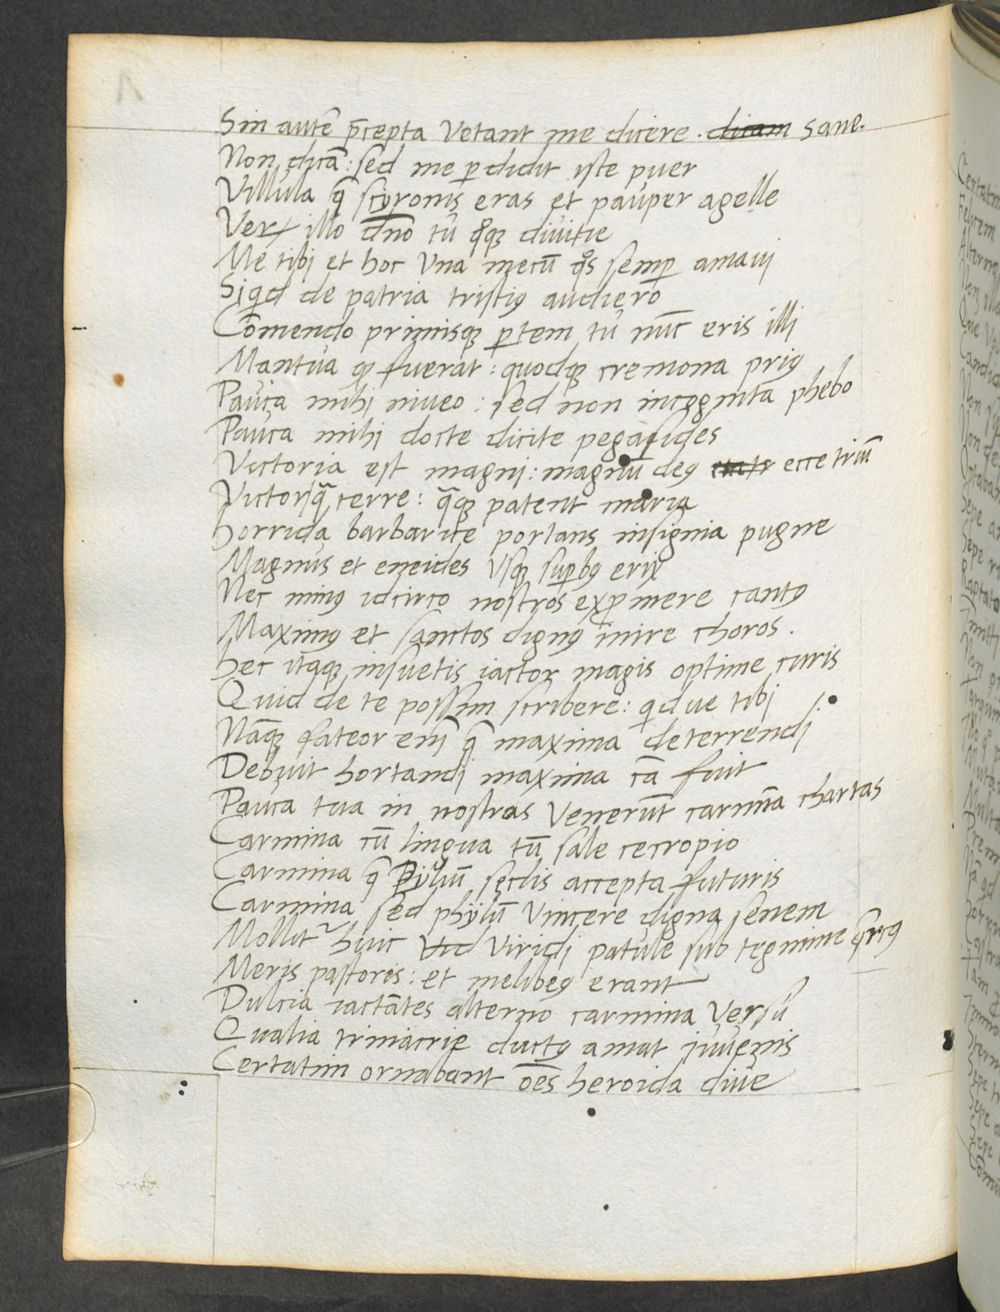 Sin autē p̄cepta Vetant me dicere . dicam sane.
Non dicā : sed me ꝑdidit iste puer
Villula q̄ scyronis eras et pauper agelle
Ver illo dn̄o tu qͦqꝫ diuitie
Me tibi et hoc Una mecū qͦs semꝑ amaui
Siqd de patria tristiꝰ audiero
Cōmendo primisqꝫ ꝑtem tu nūc eris illi
Mantua qͩ fuerat : quodqꝫ cremona priꝰ
Pauca mihi niueo : sed non incognita phebo
Pauca mihi docte dicite pegasides
Victoria est magni : magnū deꝰ ecce triū
Victor q̄ terre : q̄qꝫ patent maria
horrida barbarite portans insignia pugne
Magnus et eneides Usqꝫ suꝑbꝰ erix
Nec minꝰ idcirco nostros exp̄mere cantꝰ
Maximꝰ et sanctos dignꝰ inire choros .
hec itaqꝫ insuetis iactor magis optime curis
Quid de te possim scribere : qd ue tibi
Nāqꝫ fateor enī q̄ maxima deterrendi
Debuit hortandi maxima cā fuit
Pauca tua in nostras Venerūt carmīa chartas
Carmina cū lingua tū sale cecropio
Carmina q̄ Pyliū sęclis accepta futuris
Carmina sed phylū Vincere digna senem
Mollit᷑ huic Viridi patule sub tegmine q̄rcꝰ
Meris pastores : et melibeꝰ erant
Dulcia iactātes alterno carmina Versu
Qualia trinacrie ductꝰ amat iuuenis
Certatim ornabant oēs heroida diue